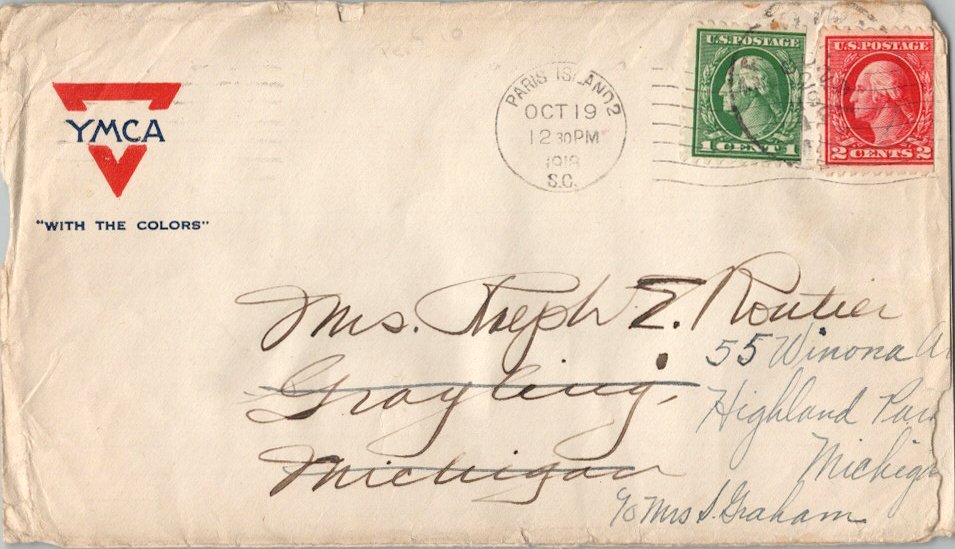 YMCA
"WITH THE COLORS"
PARIS ISLAND 2
OCT 19
12 30 PM
1918
S.C.
U.S. POSTAGE
1 CENT 1
U.S. POSTAGE
2 CENTS 2
Mrs. Joseph E. Routier
Grayling,
Michigan
55 Winona A
Highland Par
Michiga
c/o Mrs S. Graham